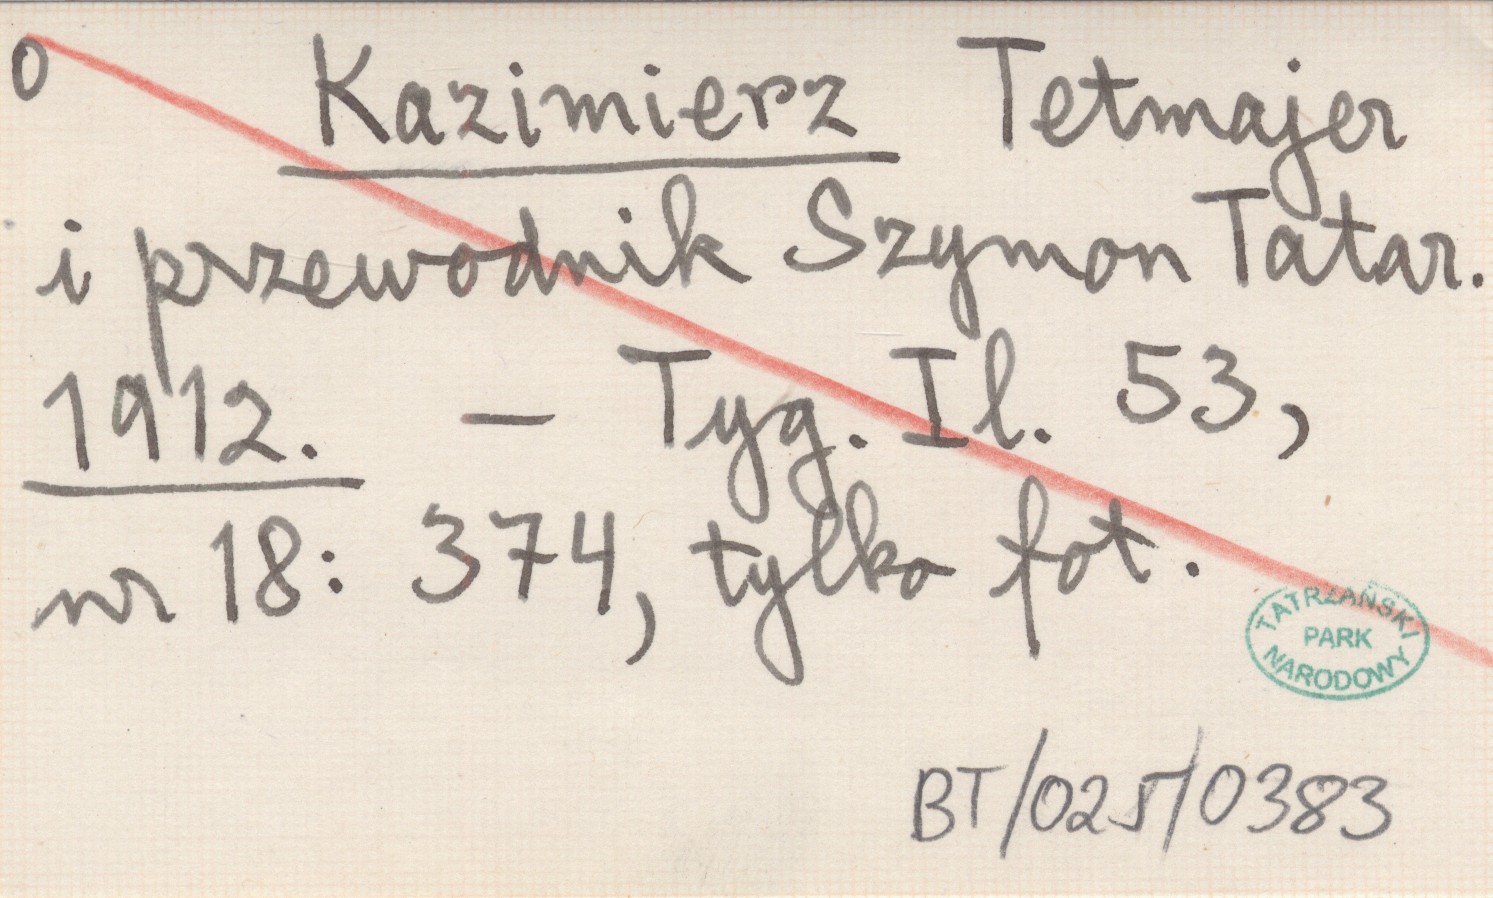 0 Kazimierz Tetmajer
i przewodnik Szymon Tatar.
1912. — Tyg. Il. 53,
nr 18: 374, tylko fot.
TATRZAŃSKI
PARK
NARODOWY
BT/025/0383